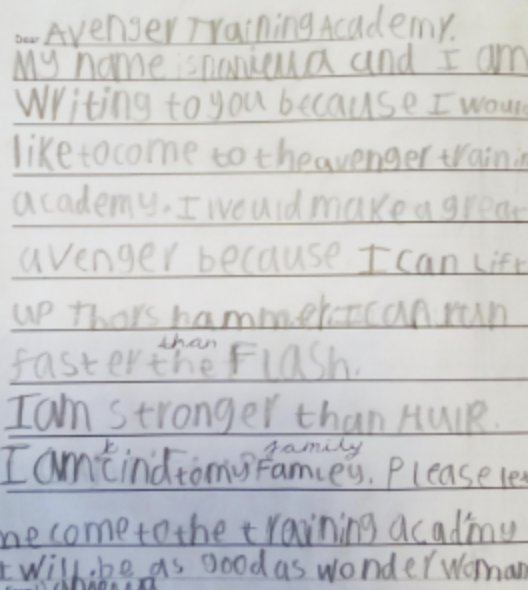 Dear Avenger Training Academy.
My name is and I am
Writing to you because I wou
like to come to the avenger trainin
academy. I would make a grea
avenger because I can Lift
up Thors hammer. I can run
than
faster the Flash.
I am stronger than HulK.
k family
I am cind to my Famley. Please le
me come to the training acadmy
I will be as good as wonder woman